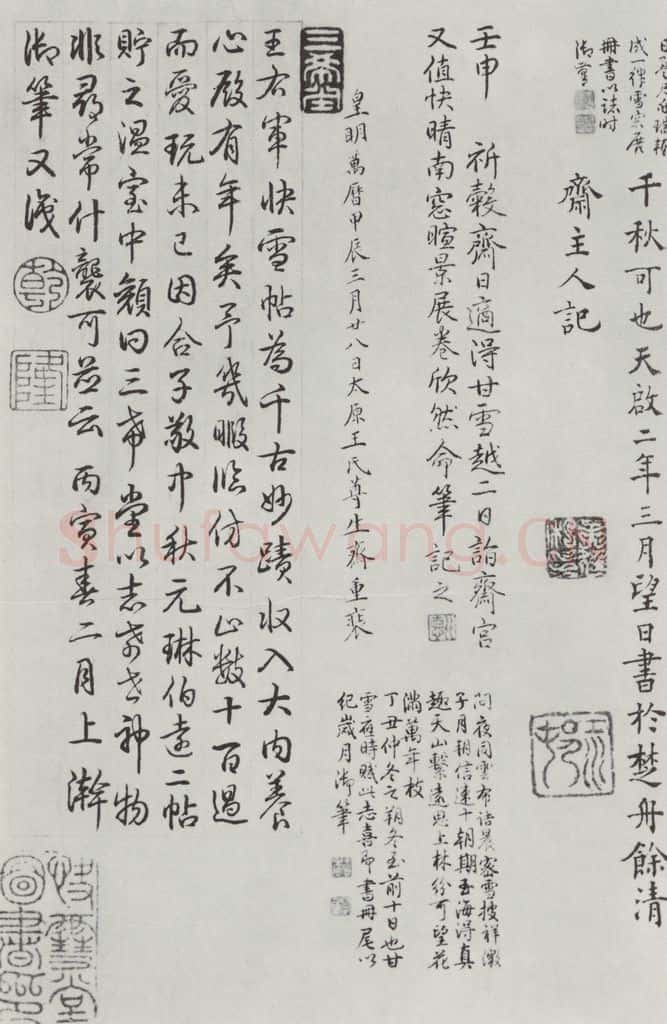 冊書以誌時
御筆
千秋可也天啟二年三月望日書於楚舟餘清
齋主人記
壬申 祈穀齋日適得甘雪越二日詣齋宮
又值快晴南窓暄景展卷欣然命筆記之
問夜同雲布詰晨密雪披祥徵
子月朔信速十朝期玉海得真
趣天山繫遠思上林紛可望花
滿萬年枝
丁丑仲冬之朔冬至前十日也甘
雪應時賦此志喜即書冊尾以
紀歲月御筆
皇明萬曆甲辰三月廿八日太原王氏尊生齋重裝
三希堂
王右軍快雪帖為千古妙蹟收入大內養
心殿有年矣予幾暇臨仿不止數十百過
而愛玩未已因合子敬中秋元琳伯遠二帖
貯之溫室中顏曰三希堂以志希世神物
非尋常什襲可並云丙寅春二月上澣
御筆又識
乾
隆
Shufawang.cn